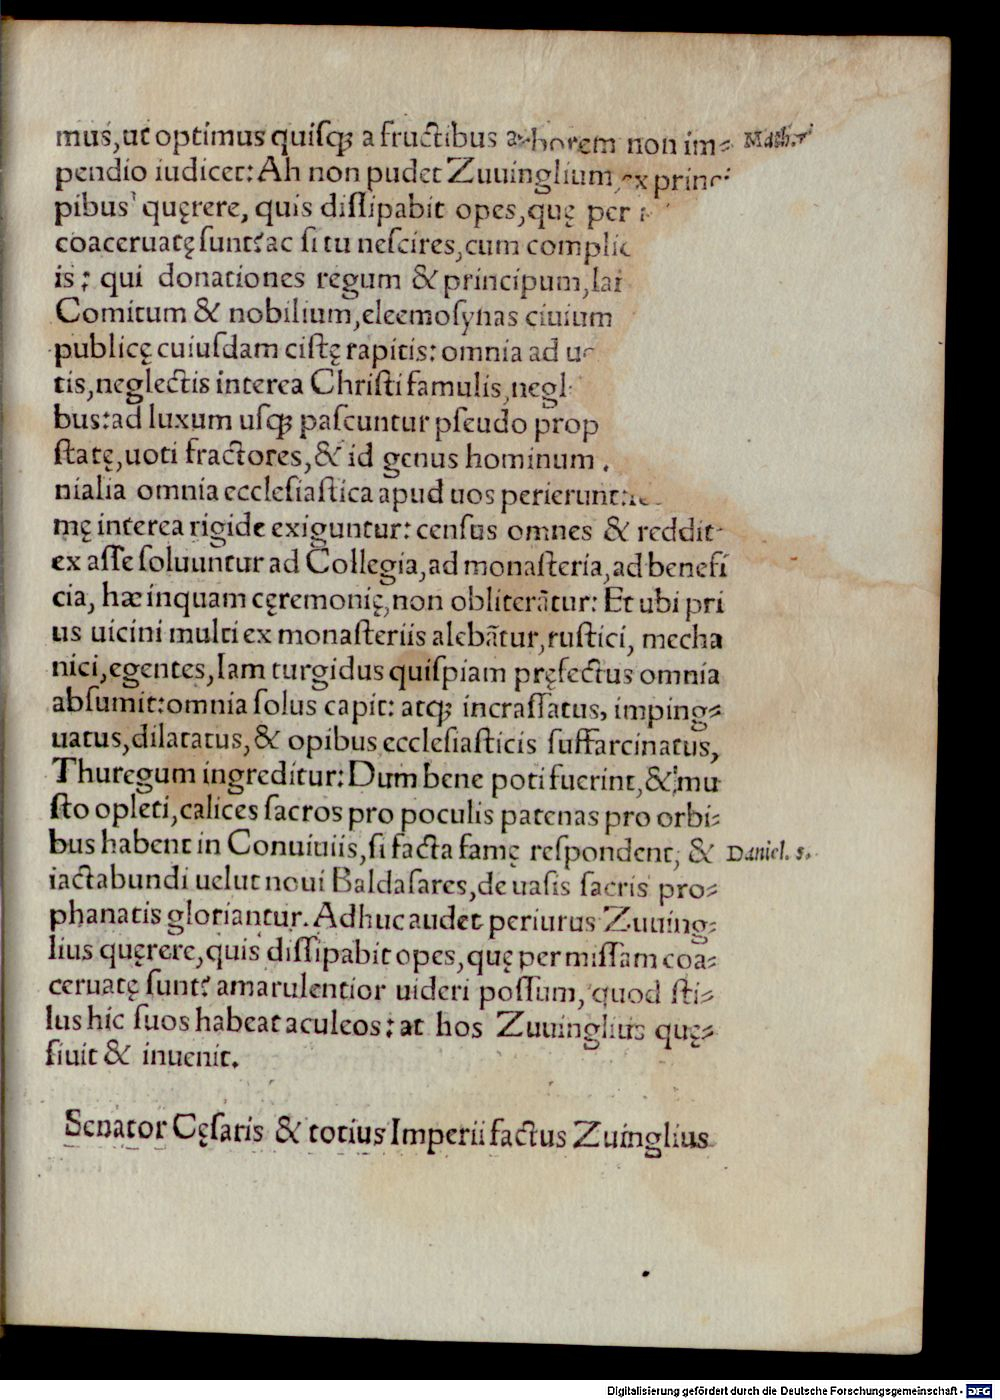 mus, ut optimus quisq; a fructibus arborem non im- Matth. 7
pendio iudicet: Ah non pudet Zuuinglium, ex princi
pibus quęrere, quis dissipabit opes, quę per
coaceruatę sunt? ac si tu nescires, cum
is: qui donationes regum & principum,
Comitum & nobilium, eleemosynas ciuium
publicę cuiusdam cistę rapitis: omnia ad
tis, neglectis interea Christi famulis,
bus: ad luxum usq; pascuntur pseudo
statę, uoti fractores, & id genus hominum.
nialia omnia ecclesiastica apud uos perierunt:
mę interea rigide exiguntur: census omnes & reddit
ex asse soluuntur ad Collegia, ad monasteria, ad benefi
cia, hæ inquam cęremonię, non obliterãtur: Et ubi pri
us uicini multi ex monasteriis alebãtur, rustici, mecha
nici, egentes, Iam turgidus quispiam pręfectus omnia
absumit: omnia solus capit: atq; incrassatus, imping-
uatus, dilatatus, & opibus ecclesiasticis suffarcinatus,
Thuregum ingreditur: Dum bene poti fuerint, & mu
sto opleti, calices sacros pro poculis patenas pro orbi-
bus habent in Conuiuiis, si facta famę respondent, & Daniel. 5.
iactabundi uelut noui Baldasares, de uasis sacris pro-
phanatis gloriantur. Adhuc audet periurus Zuuing-
lius quęrere, quis dissipabit opes, quę per missam coa-
ceruatę sunt? amarulentior uideri possum, quod sti-
lus hic suos habeat aculeos: at hos Zuuinglius quę-
siuit & inuenit.
Senator Cęsaris & totius Imperii factus Zuinglius
Digitalisierung gefördert durch die Deutsche Forschungsgemeinschaft - DFG